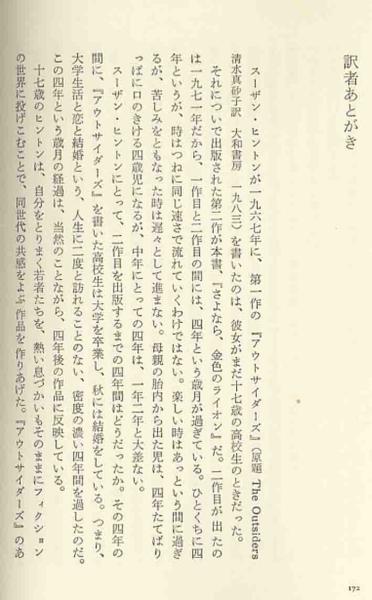 訳者あとがき
スーザン・ヒントンが一九六七年に、第一作の『アウトサイダーズ』(原題 The Outsiders
清水真砂子訳 大和書房 一九八三)を書いたのは、彼女がまだ十七歳の高校生のときだった。
それについで出版された第二作が本書、『さよなら、金色のライオン』だ。二作目が出たの
は一九七一年だから、一作目と二作目の間には、四年という歳月が過ぎている。ひとくちに四
年というが、時はつねに同じ速さで流れていくわけではない。楽しい時はあっという間に過ぎ
るが、苦しみをともなった時は遅々として進まない。母親の胎内から出た児は、四年たてばり
っぱに口のきける四歳児になるが、中年にとっての四年は、一年二年と大差ない。
スーザン・ヒントンにとって、二作目を出版するまでの四年間はどうだったか。その四年の
間に、『アウトサイダーズ』を書いた高校生は大学を卒業し、秋には結婚をしている。つまり、
大学生活と恋と結婚という、人生に二度と訪れることのない、密度の濃い四年間を過したのだ。
この四年という歳月の経過は、当然のことながら、四年後の作品に反映している。
十七歳のヒントンは、自分をとりまく若者たちを、熱い息づかいもそのままにフィクション
の世界に投げこむことで、同世代の共感をよぶ作品を作りあげた。『アウトサイダーズ』のあ
172